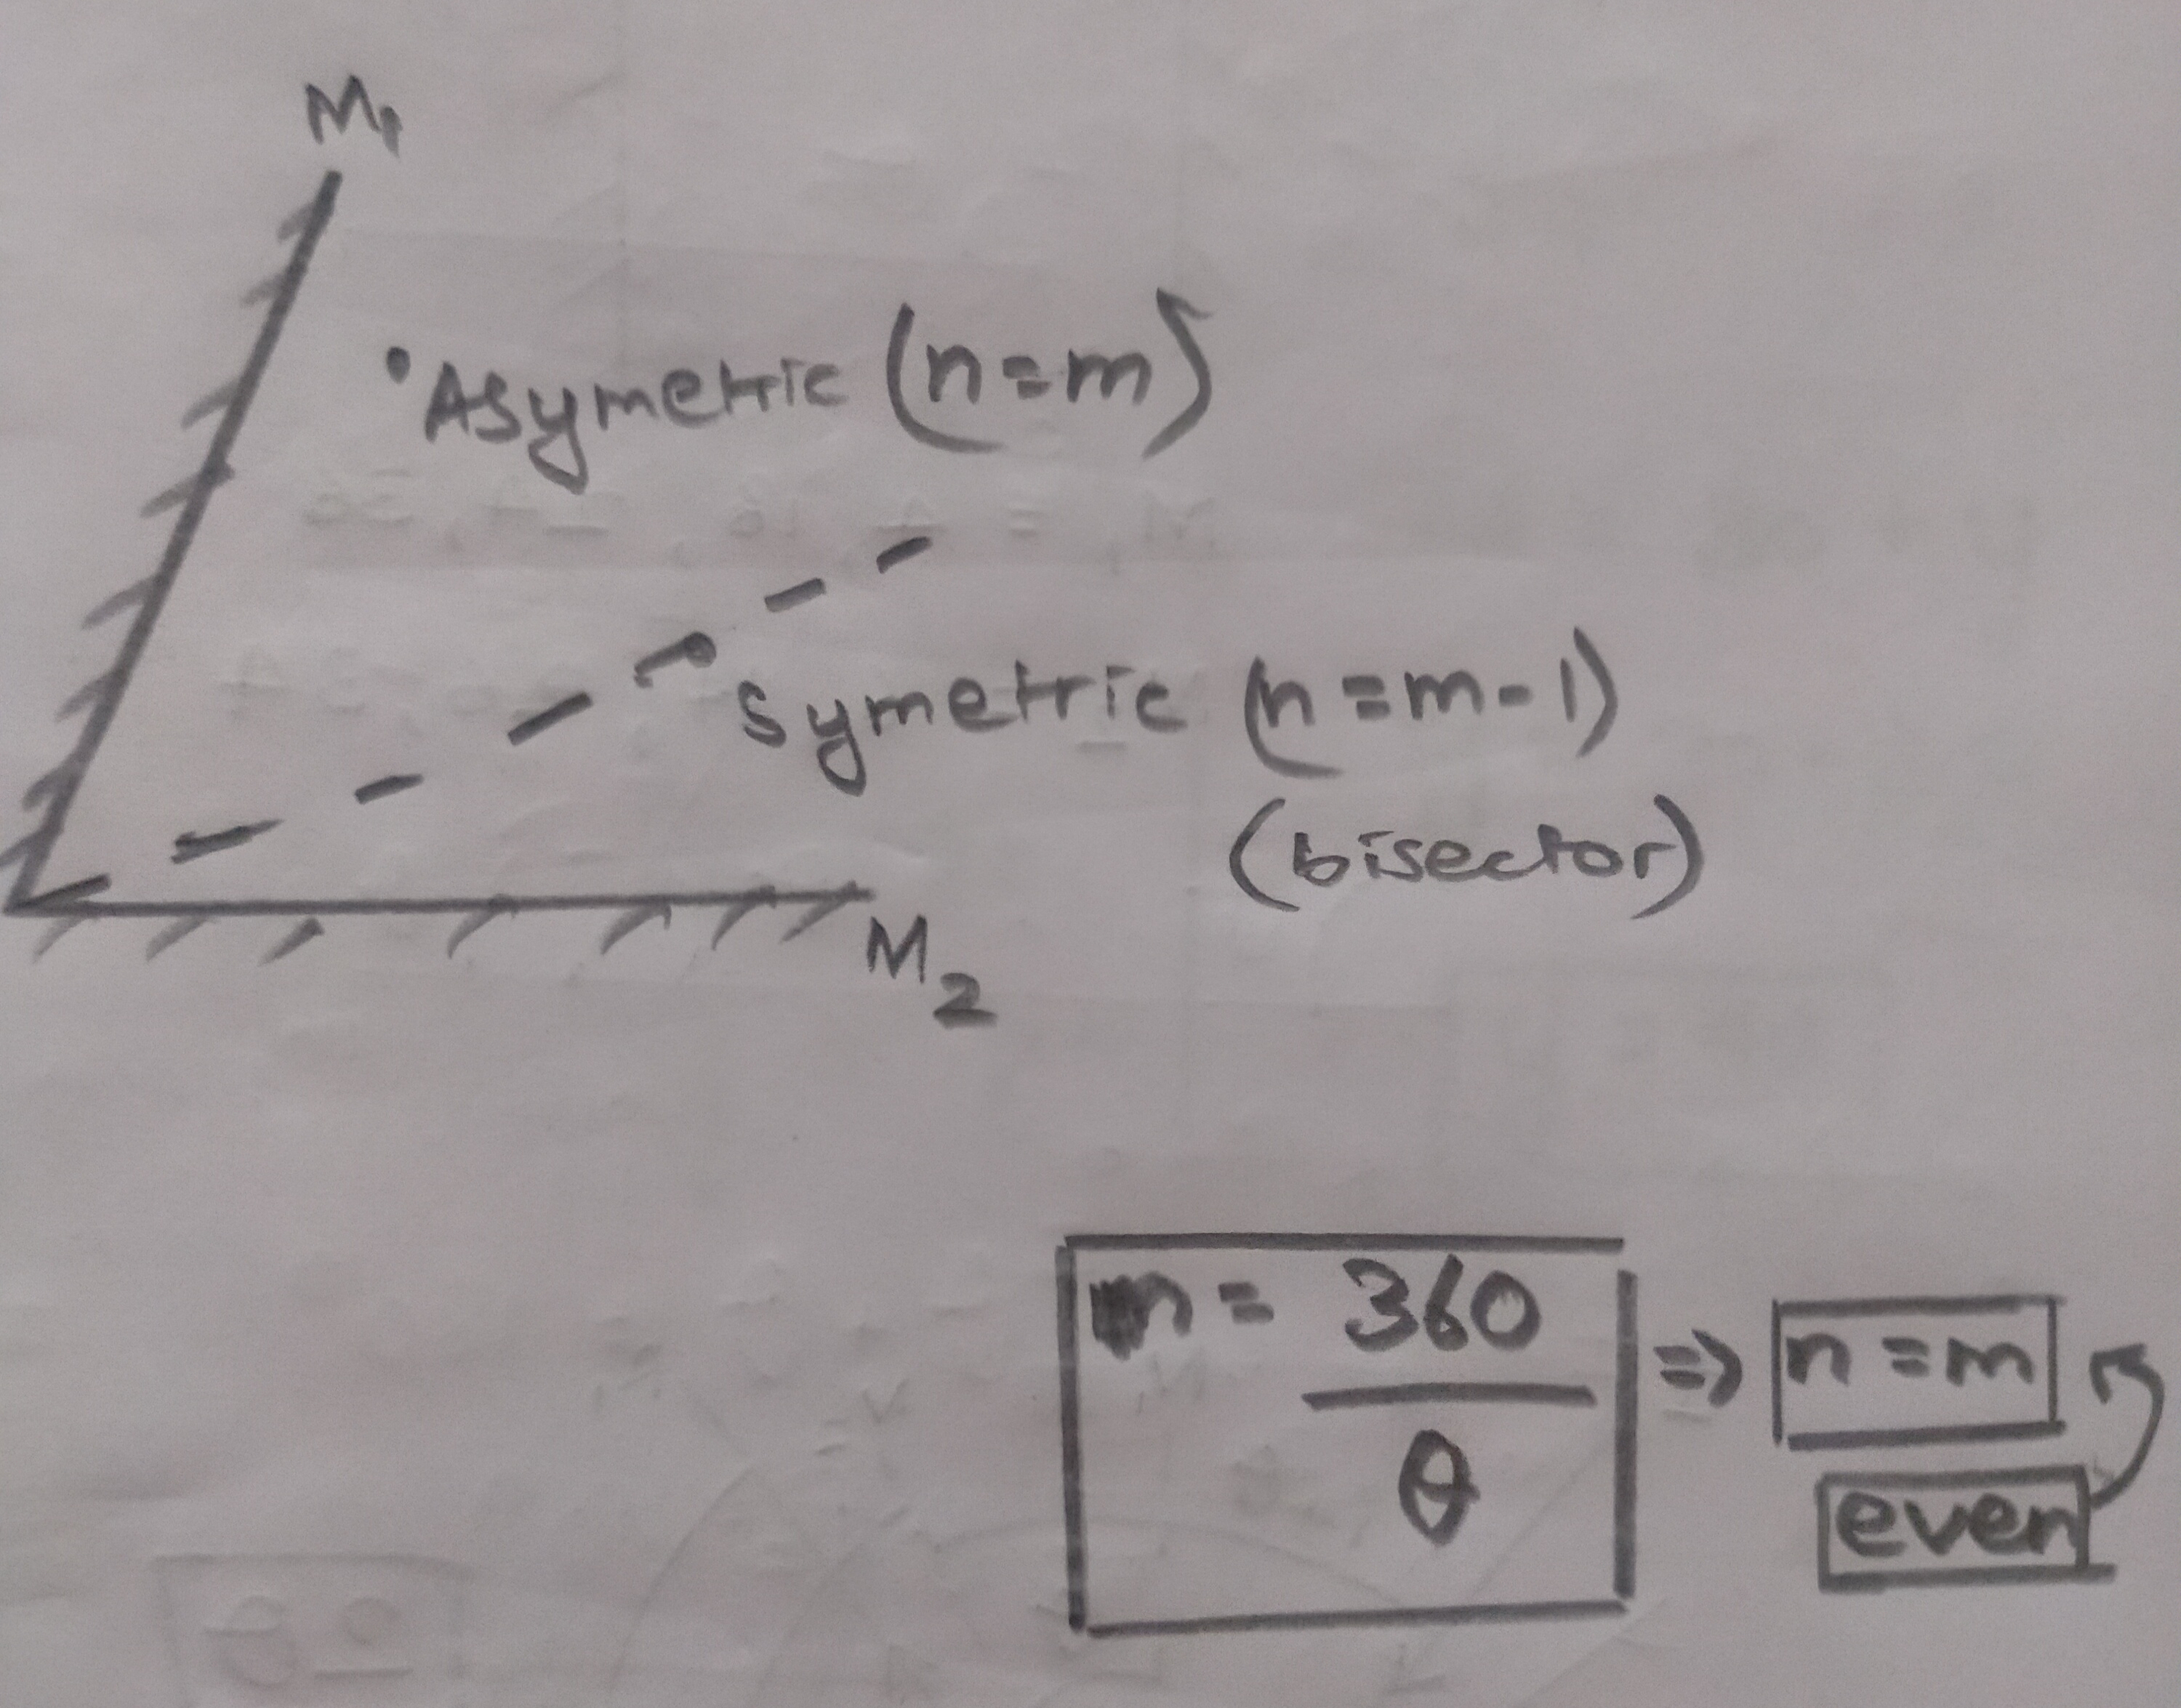 M₁
Asymetric (n=m)
Symetric (n=m-1)
(bisector)
M₂
m = 360/θ => n=m
even